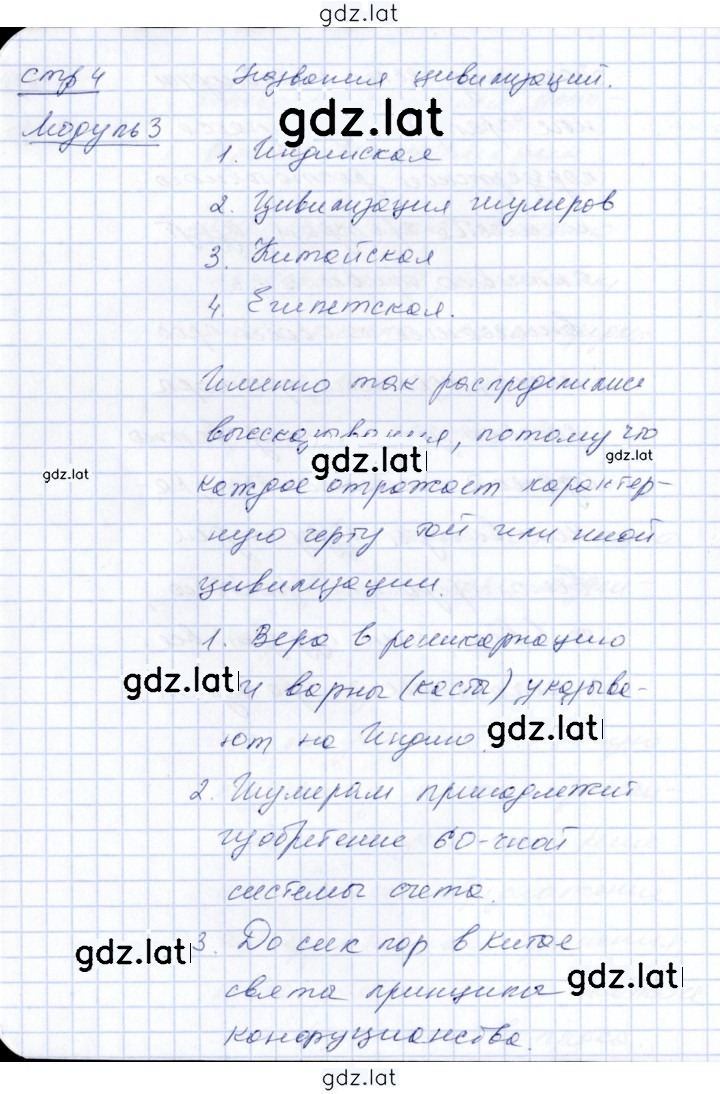 gdz.lat
стр 4 Названия цивилизаций.
Модуль 3
gdz.lat
1. Индийская
2. Цивилизация шумеров
3. Китайская
4. Египетская.
Именно так распределились
высказывания, потому что
gdz.lat gdz.lat gdz.lat
каждое отражает характер-
ную черту той или иной
цивилизации.
1. Вера в реинкарнацию
gdz.lat
и варны (касты) указыва-
ют на Индию.
gdz.lat
2. Шумерам принадлежит
изобретение 60-чной
системы счета.
3. До сих пор в Китае
gdz.lat
святы принципы
gdz.lat
конфуцианства.
gdz.lat